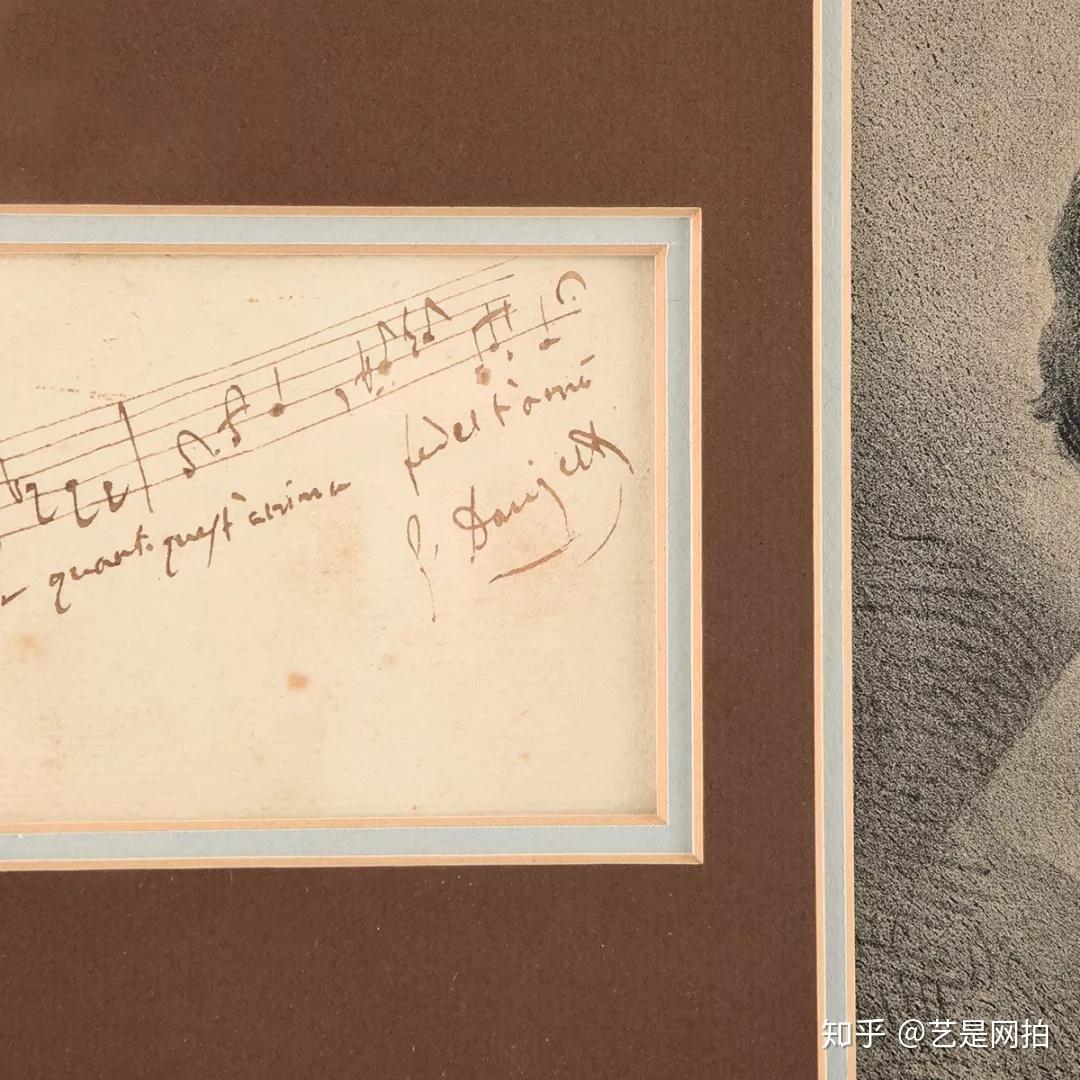 quanto quest'anima
fedel t'amò
G. Donizetti
知乎 @艺是网拍